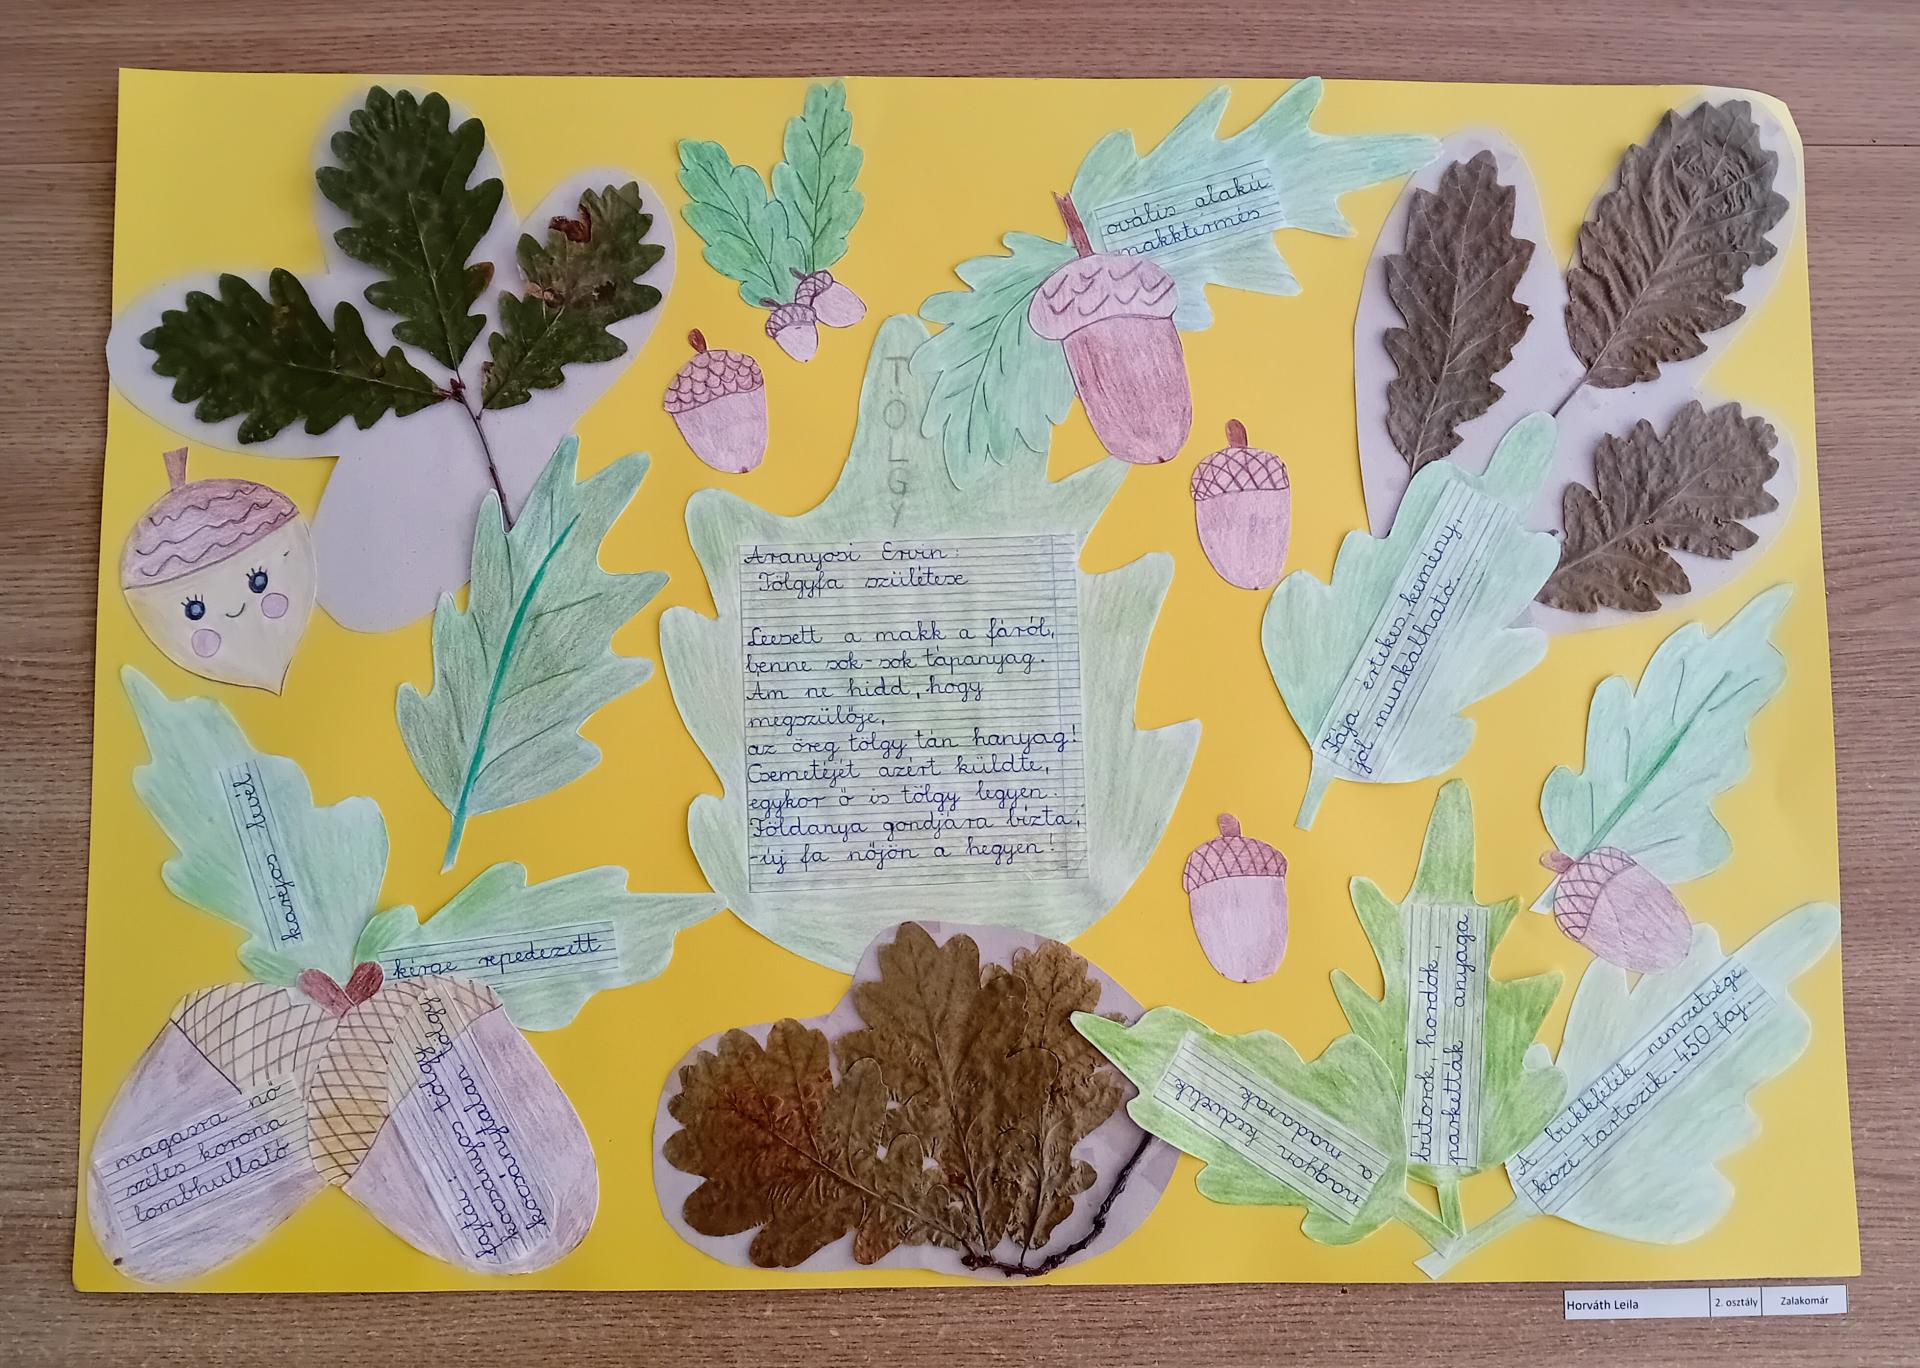 ovális alakú
makktermés
TÖLGY
Aranyosi Ervin:
Tölgyfa születése
Leesett a makk a fáról,
benne sok-sok tápanyag.
Ám ne hidd, hogy
megszülője,
az öreg tölgy tán hanyag!
Csemetéjét azért küldte,
egykor ő is tölgy legyen.
Földanya gondjára bízta,
-új fa nőjön a hegyen!
Fája értékes, kemény,
jól munkálható.
karéjos levél
kérge repedezett
magasra nő
széles korona
lombhullató
fajtái:
kocsányos tölgy
kocsánytalan tölgy
nagyon kedvelik
a madarak
bútorok, hordók,
parketták anyaga
A bükkfélék nemzetsége
közé tartozik. 450 faj.
Horváth Leila
2. osztály
Zalakomár